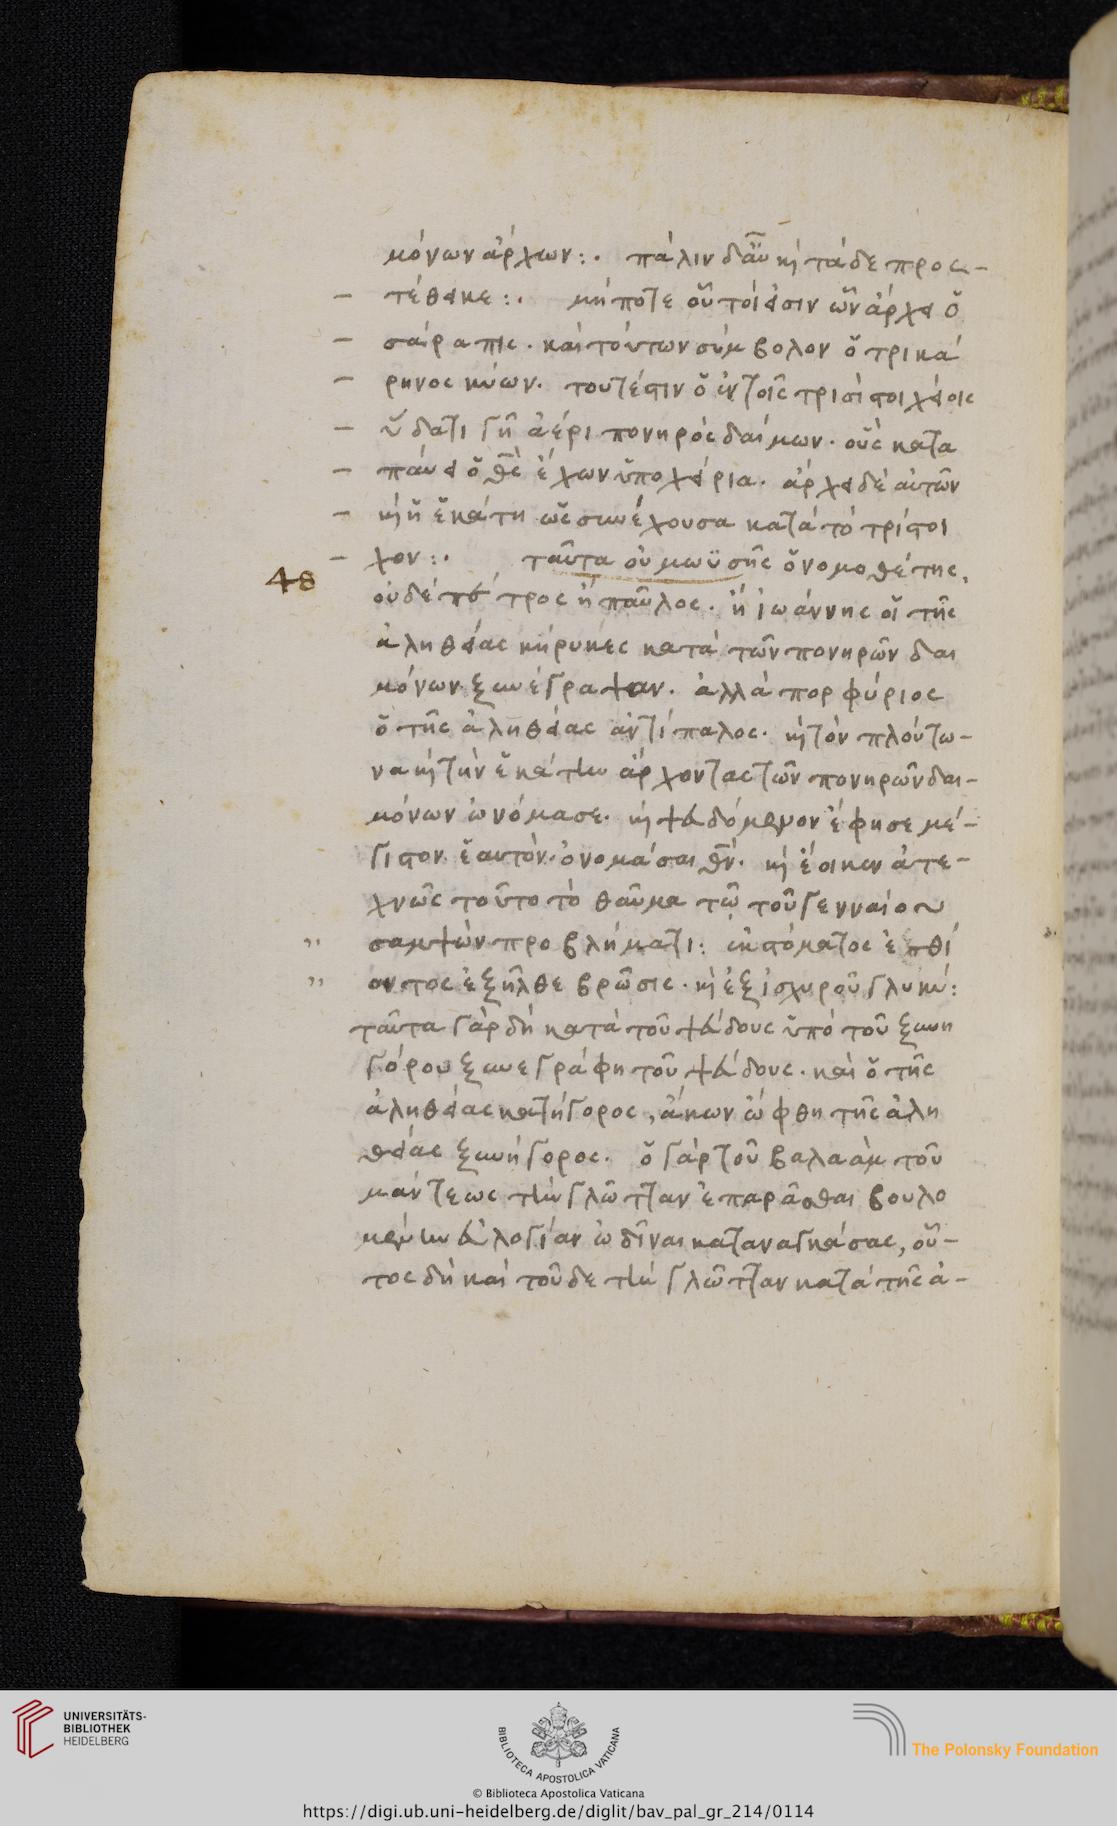 μόνων ἄρχων:. πάλιν δ' αὖ κὶ τάδε προς-
τέθεικε:. μήποτε οὗτοί εἰσιν ὧν ἄρχει ὁ
σάραπις. καὶ τούτων σύμβολον ὁ τρικά
ρηνος κύων. τουτέστιν ὁ ἐν τοῖς τρισὶ στοιχείοις
ὕδατι γῆ ἀέρι πονηρὸς δαίμων. οὓς κατα
παύει ὁ θς ὁ ἔχων ὑποχείρια. ἄρχει δὲ αὐτῶν
κὶ ἡ ἑκάτη ὡς συνέχουσα κατὰ τὸ τρίστοι
χον:. ταῦτα οὐ μωϋσῆς ὁ νομοθέτης,
48
οὐδὲ πέτρος ἢ παῦλος. ἢ ἰωάννης οἱ τῆς
ἀληθείας κήρυκες κατὰ τῶν πονηρῶν δαι
μόνων ξυνέγραψαν. ἀλλὰ πορφύριος
ὁ τῆς ἀληθείας ἀντίπαλος. κὶ τὸν πλούτω-
να κὶ τὴν ἑκάτην ἄρχοντας τῶν πονηρῶν δαι-
μόνων ὠνόμασε. κὶ ψευδόμενον ἔφησε μέ-
γιστον ἑαυτὸν ὀνομάσαι θν. κὶ ἔοικεν ἀτε-
χνῶς τοῦτο τὸ θαῦμα τῷ τοῦ γενναίου
σαμψὼν προβλήματι: ἐκ στόματος ἐσθί
οντος ἐξῆλθε βρῶσις. κὶ ἐξ ἰσχυροῦ γλυκύ:
ταῦτα γὰρ δὴ κατὰ τοῦ ψεύδους ὑπὸ τοῦ ξυνη
γόρου ξυνεγράφη τοῦ ψεύδους. καὶ ὁ τῆς
ἀληθείας κατήγορος, ἄκων ὤφθη τῆς ἀλη
θείας ξυνήγορος. ὁ γὰρ τοῦ βαλαὰμ τοῦ
μάντεως τὴν γλῶτταν ἐπαρᾶσθαι βουλο
μένην εὐλογίαν ὠδῖναι καταναγκάσας, οὗ-
τος δὴ καὶ τοῦδε τὴν γλῶτταν κατὰ τῆς ἀ-
UNIVERSITÄTS-
BIBLIOTHEK
HEIDELBERG
BIBLIOTECA APOSTOLICA VATICANA
The Polonsky Foundation
© Biblioteca Apostolica Vaticana
https://digi.ub.uni-heidelberg.de/diglit/bav_pal_gr_214/0114